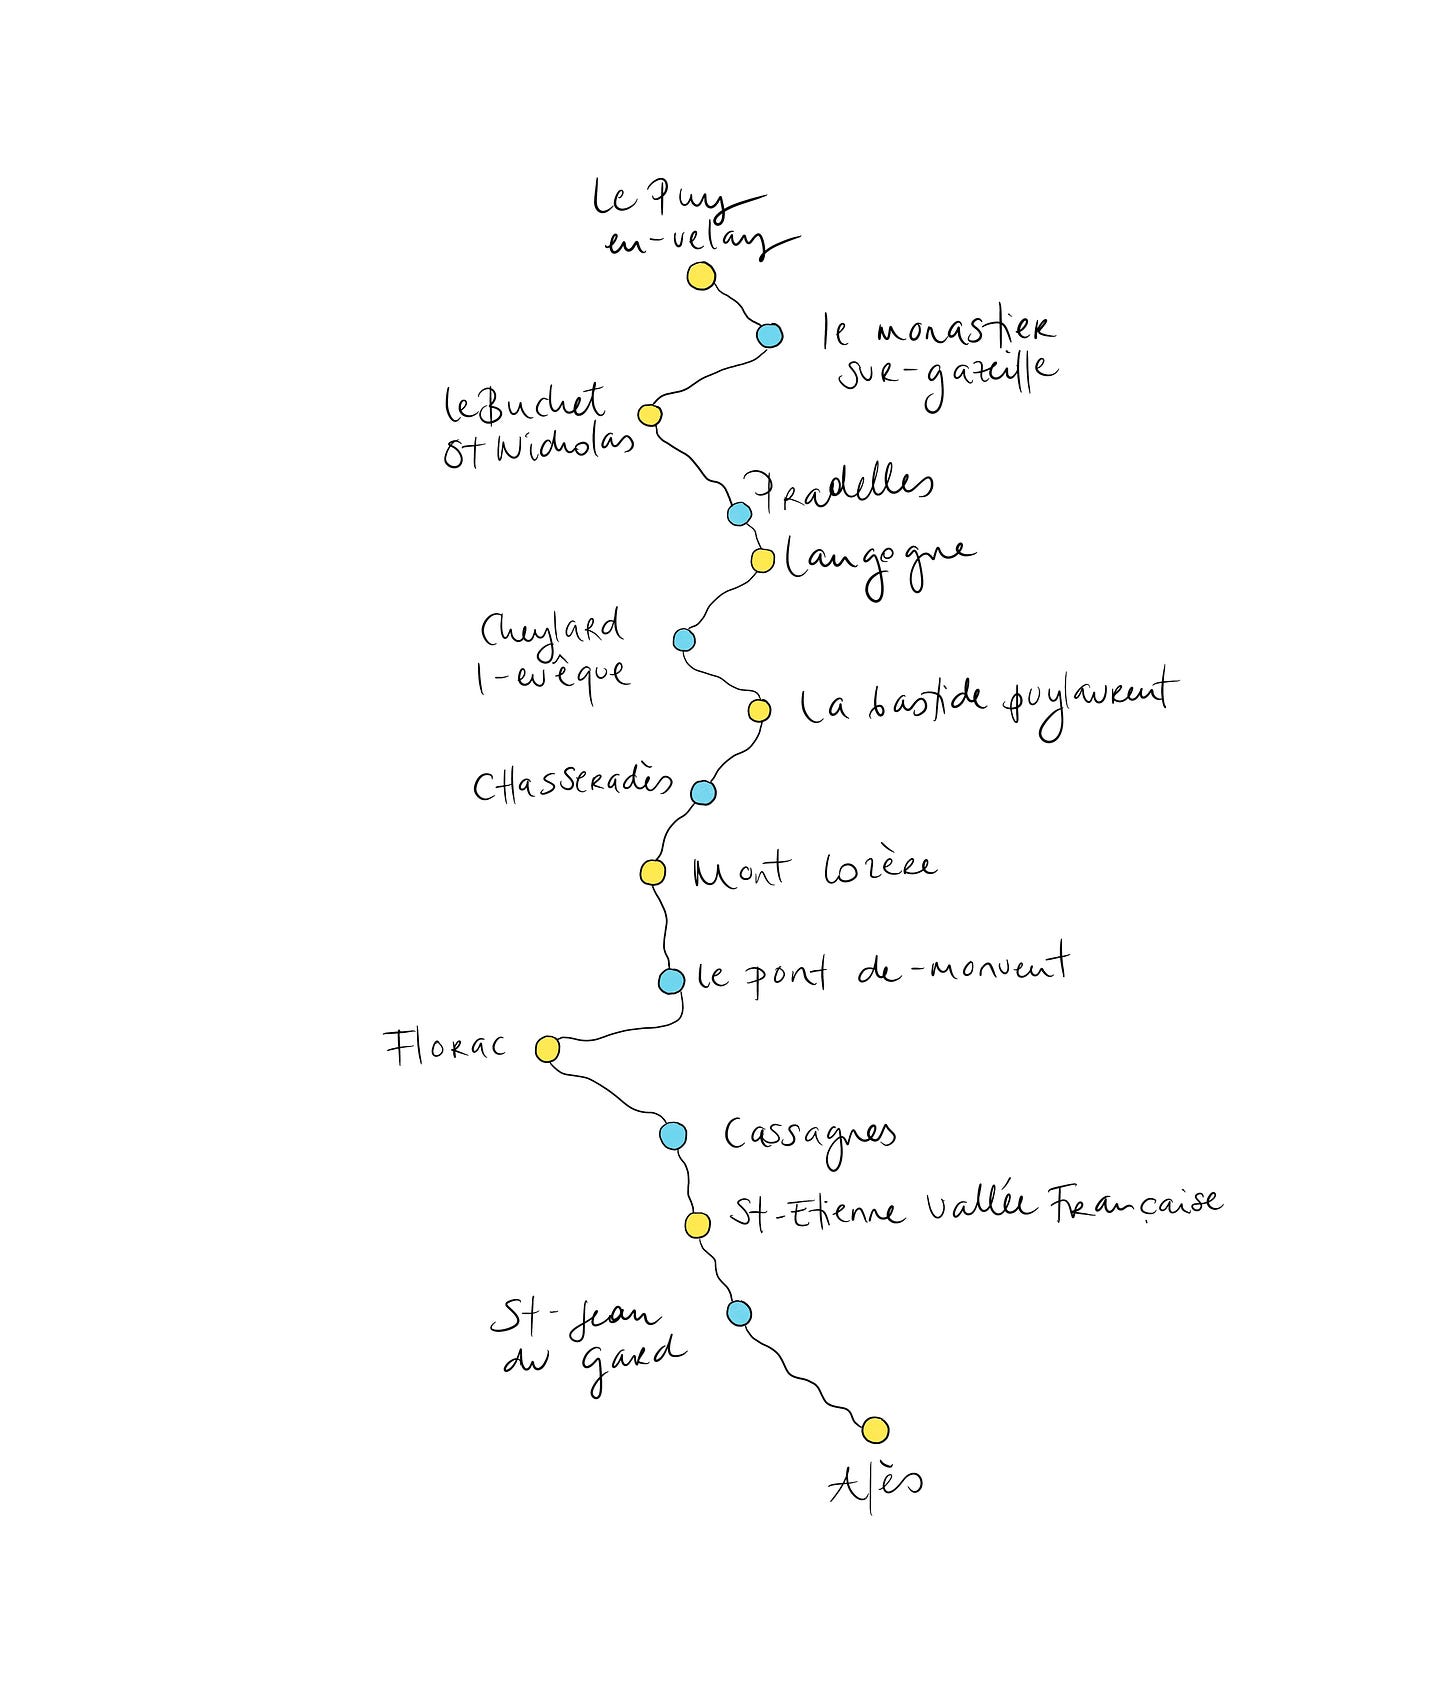 Le Puy
en-velay
le monastier
sur-gazeille
le Buchet
St Nicholas
Pradelles
Langogne
Cheylard
l-evêque
La bastide puylaurent
CHasseradès
Mont Lozère
le pont de-monvent
Florac
Cassagnes
St-Etienne Vallée Française
St-Jean
du gard
Alès